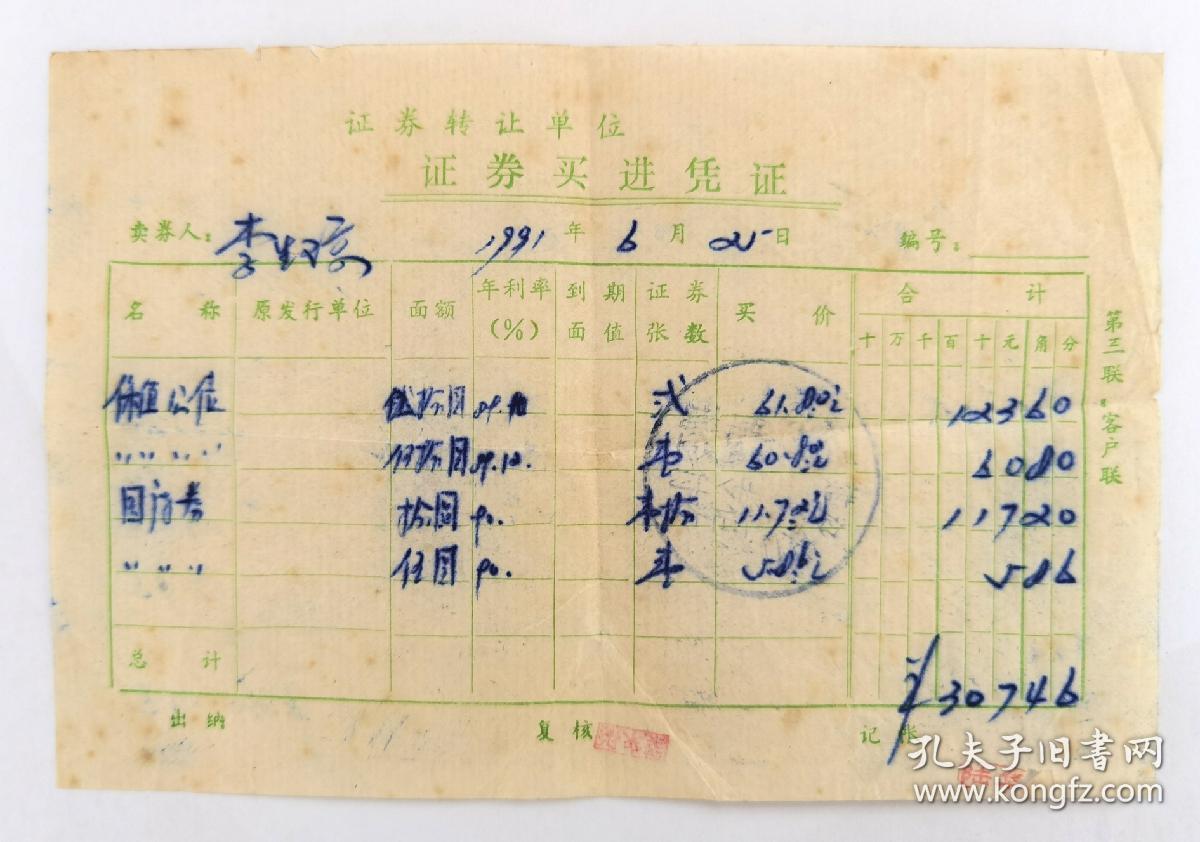 证券转让单位
证券买进凭证
卖券人：李 1991年6月25日 编号：
名称 原发行单位 面额 年利率(%) 到期面值 证券张数 买价 合计
十 万 千 百 十 元 角 分
保值公债 伍拾圆 89.10 弍 61.80 12360
〃〃〃〃 伍拾圆 89.10. 壱 60.80 6080
国库券 拾圆 90. 壱拾 11.72 11720
〃〃〃 伍圆 90. 壱 5.86 586
总计 ¥30746
出纳 复核 记账
第三联：客户联
孔夫子旧书网
www.kongfz.com